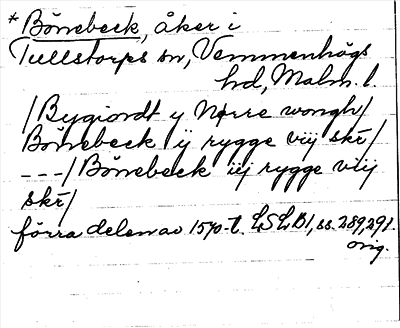 * Bönebeck, åker i
Tullstorps sn, Vemmenhögs
hd, Malm. l.
/Bygiordt y Nørre wongh/
Bönebeck ÿ rygge viij skr/
---/Bönebeck iij rygge viij
skr/
förra delen av 1570-t. LSLB1, ss. 289, 291.
orig.